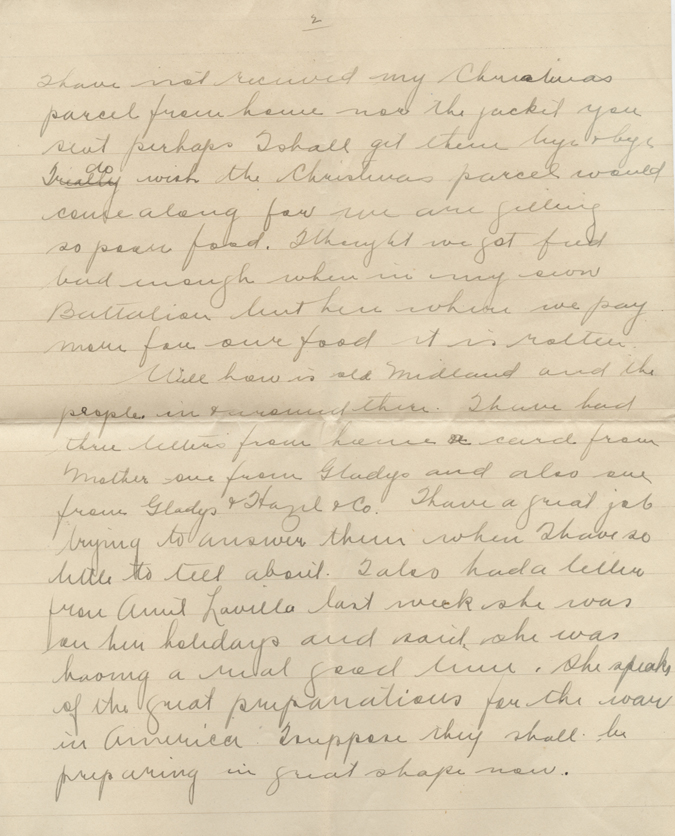 2
I have not received my Christmas
parcel from home nor the jacket you
sent perhaps I shall get them bye & bye
I do wish the Christmas parcel would
come along for we are getting
so poor food. I thought we got fed
bad enough when in my own
Battalion but here where we pay
more for our food it is rotten.
Well how is old Midland and the
people in & around there. I have had
three letters from home a card from
Mother one from Gladys and also one
from Gladys & Hazel & Co. I have a great job
trying to answer them when I have so
little to tell about. I also had a letter
from Aunt Lavilla last week she was
on her holidays and said she was
having a real good time. She speaks
of the great preparations for the war
in America. I suppose they shall be
preparing in great shape now.